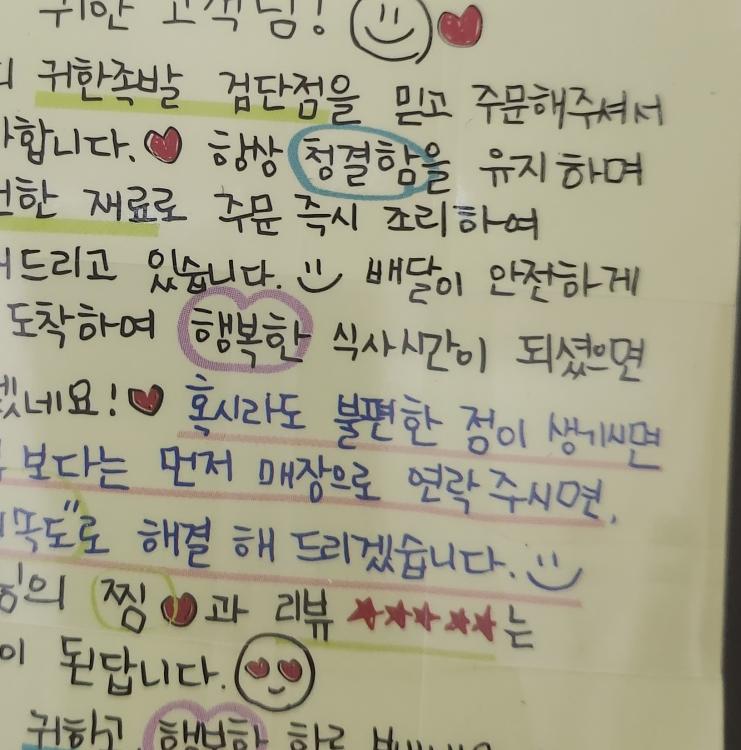 귀한 고객님!
귀한족발 검단점을 믿고 주문해주셔서
합니다. 항상 청결함을 유지하며
한 재료로 주문 즉시 조리하여
드리고 있습니다. 배달이 안전하게
도착하여 행복한 식사시간이 되셨으면
겠네요! 혹시라도 불편한 점이 생기시면
보다는 먼저 매장으로 연락 주시면,
똑도"로 해결 해 드리겠습니다.
의 찜 과 리뷰 ★★★★★는
이 된답니다.
귀하고 행복한 하루